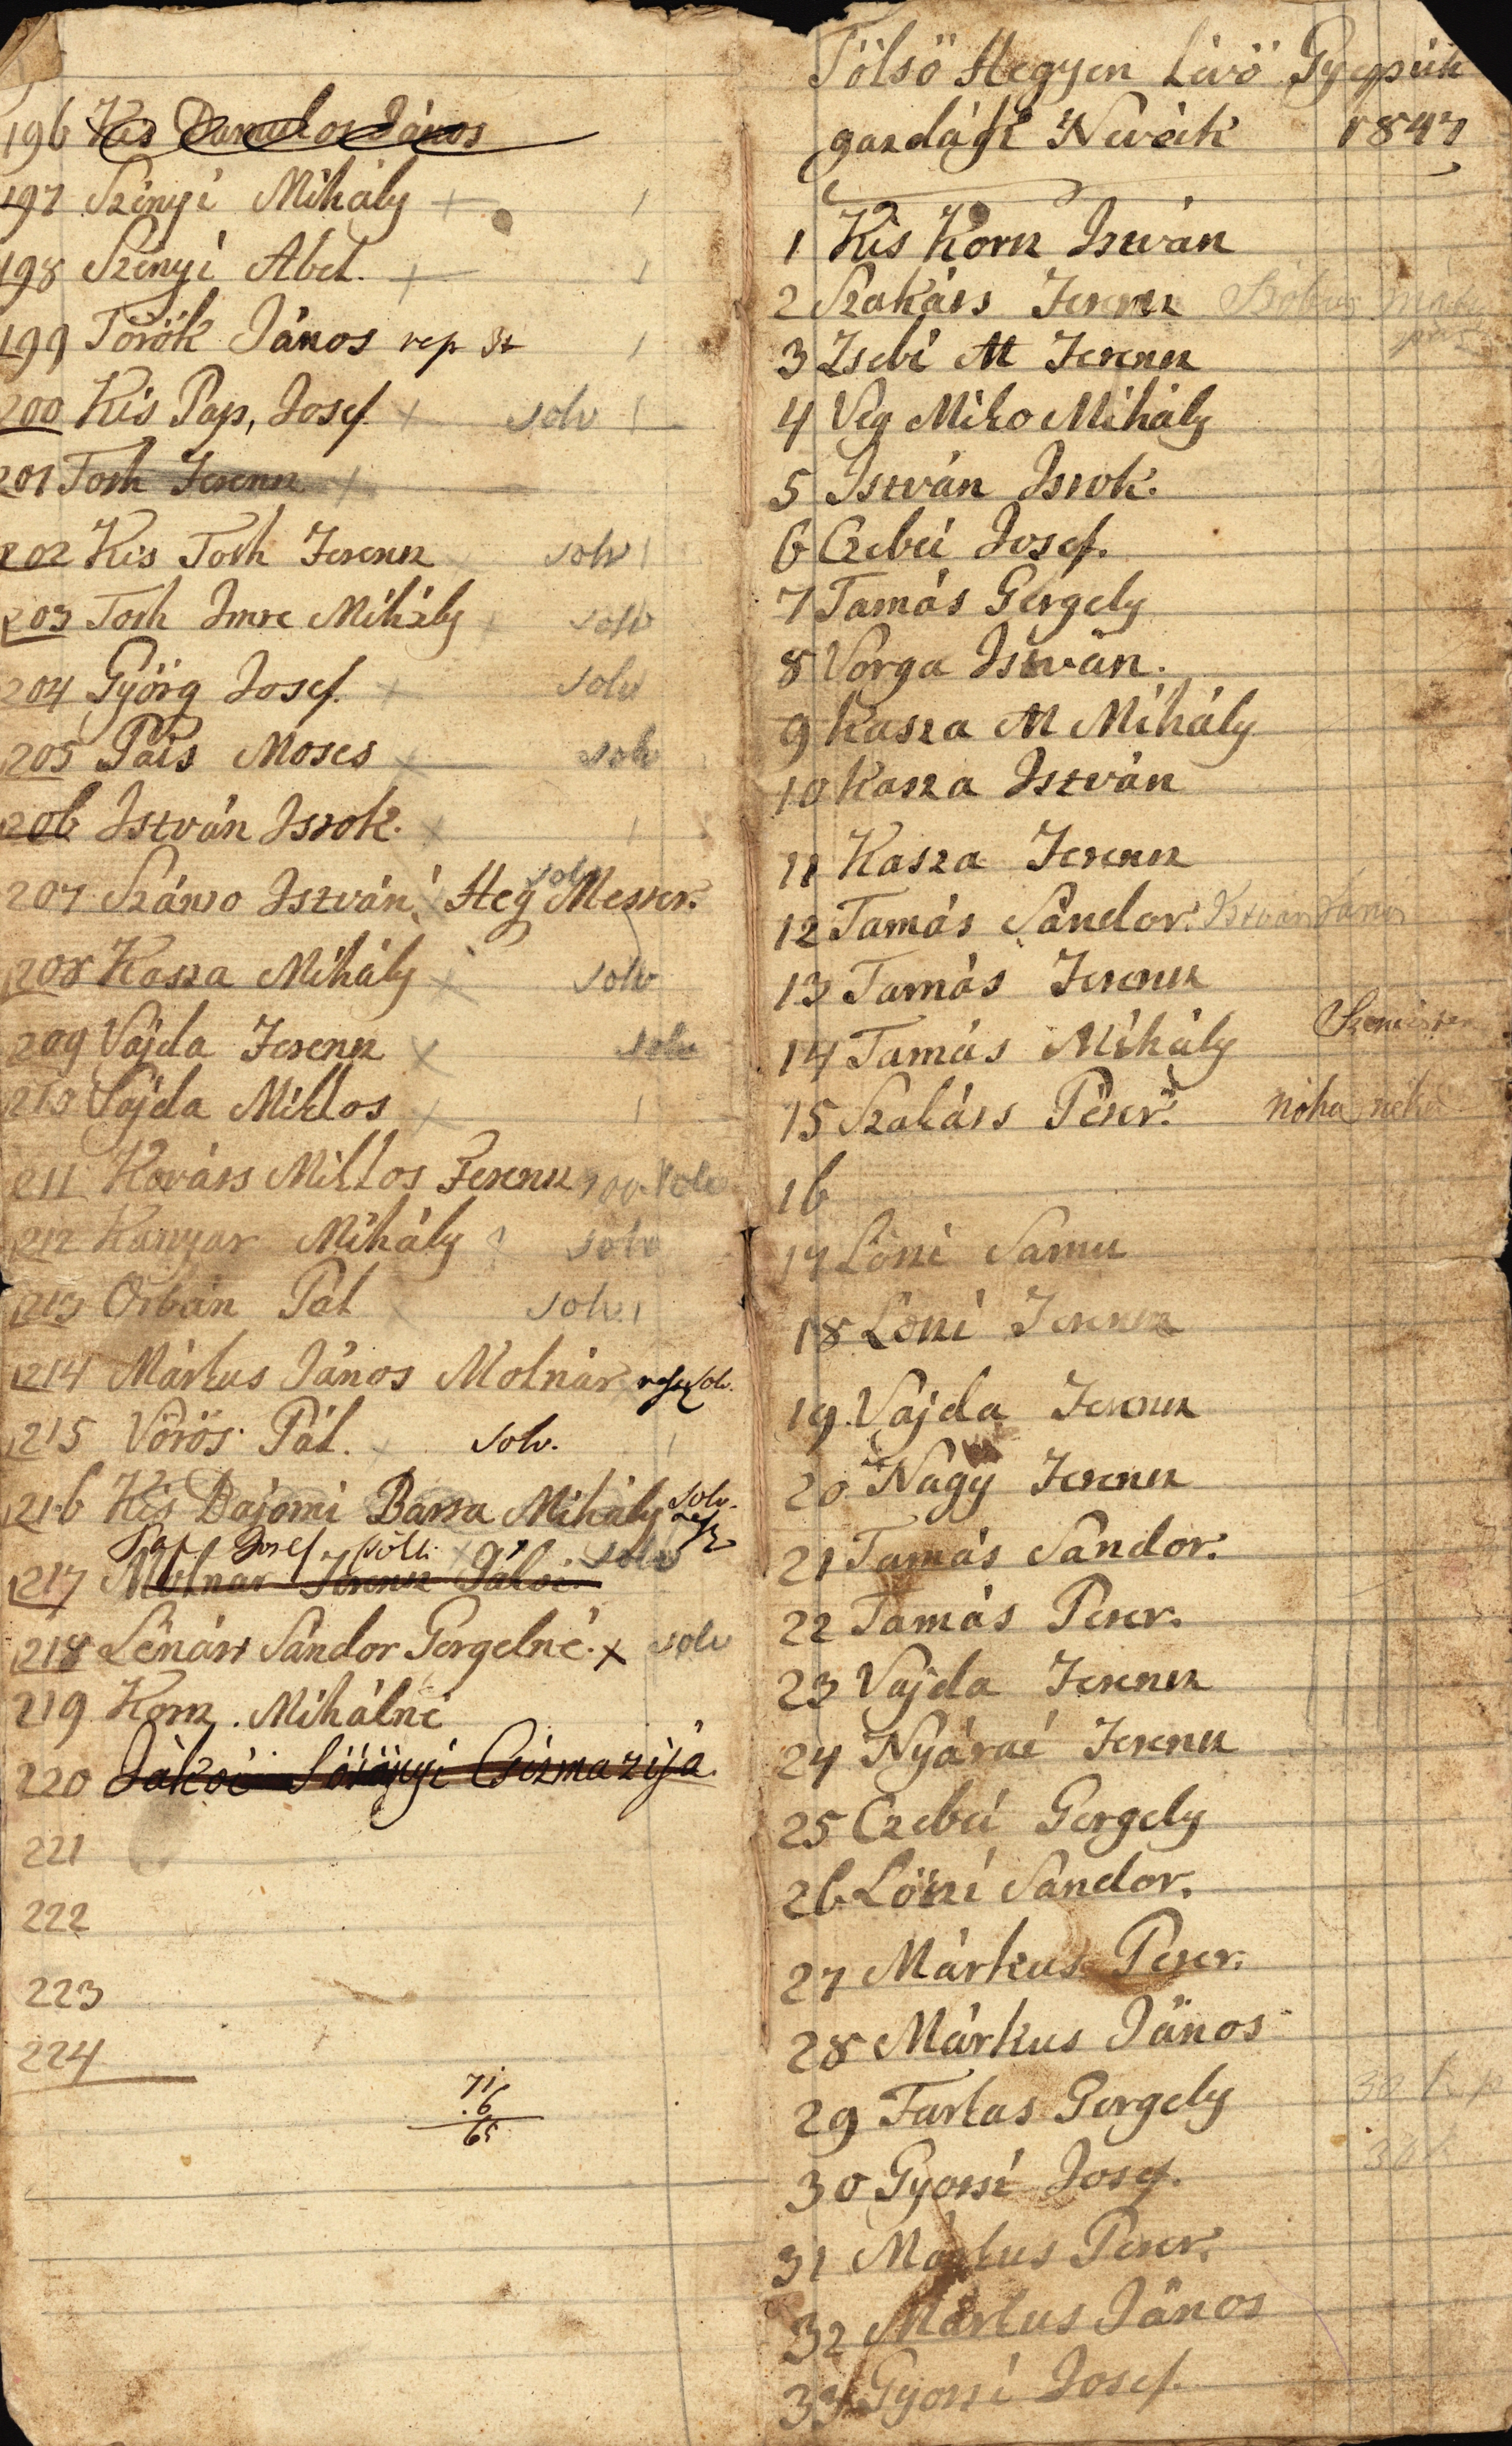 196 Kis Darados János
197 Szényi Mihály + 1
198 Szényi Abel. + 1
199 Török János rep 3t 1
200 Kis Pap, Josef + solv 1
201 Toth Ferencz +
202 Kis Toth Ferencz + solv 1
203 Toth Imre Mihály + solv
204 Györg Josef. + solv
205 Páis Moses + solv
206 István Istok. + 1
207 Szántó István Heg Mester. solv
208 Kasza Mihály + solv
209 Vajda Ferencz + solv
210 Vajda Miklos + 1
211 Kováts Miklos Ferencz solv
212 Kanyar Mihály solv
213 Orbán Pál + solv. 1
214 Márkus János Molnár rep solv.
215 Vörös Pál. + solv. 1
216 Kis Bajomi Barta Mihály solv.
Pap Josef
217 Molnar Ferencz Jákoi solv
218 Lénárt Sándor Gergelné. x solv
219 Korn. Mihálné
220 Jákoi Csizmazija.
221
222
223
224
71
.6
65
Fölső Hegyen Lévő Gyepük
gazdáji Neveik 1847
1 Kis Korn István
2 Szakáts Ferencz
3 Zsebi M Ferencz
4 Veg Miko Mihály
5 István Istok.
6 Czebei Josef.
7 Tamás Gergely
8 Vorga István.
9 Kasza M Mihály
10 Kasza István
11 Kasza Ferencz
12 Tamás Sándor. István János
13 Tamás Ferencz
14 Tamás Mihály
15 Szakáts Péter. noha neke
16
17 Löni Samu
18 Löni Ferencz
19. Vajda Ferencz
20. Nagy Ferencz
21 Tamás Sándor.
22 Tamás Peter.
23 Vajda Ferencz
24 Nyárai Ferencz
25 Czebei Gergely
26 Löni Sándor.
27 Márkus Peter.
28 Márkus János
29 Farkas Gergely 30 k p
30 Gyotsi Josef. 30 k
31 Márkus Peter.
32 Márkus János
33 Gyotsi Josef.